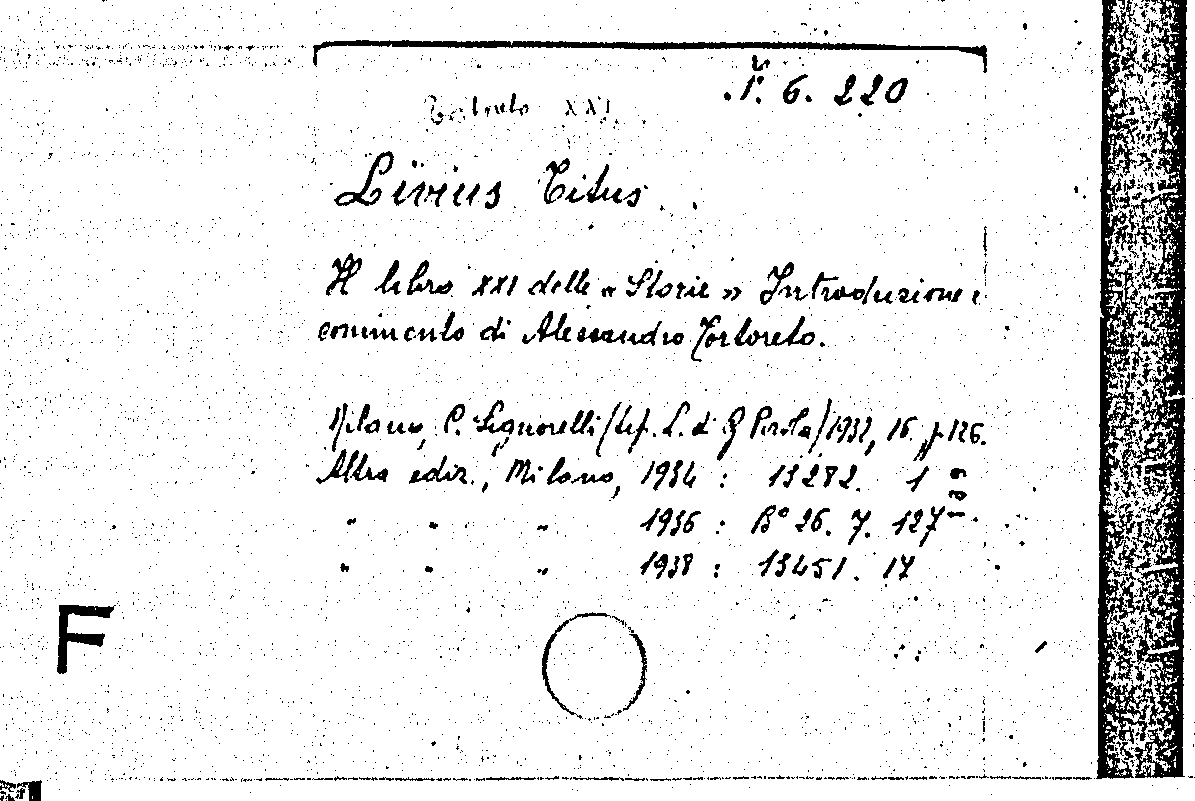 6. 220
XXI
Livius Titus
Il libro XXI delle « Storie » Introduzione e
commento di Alessandro Tortoreto.
Milano, C. Signorelli (tip. L. di G. Pirola) 1932, 16. p. 126.
Altra ediz., Milano, 1934 : 13282. 1
" " " 1936 : B° 26. 7. 127
" " " 1938 : 13451. 17
F